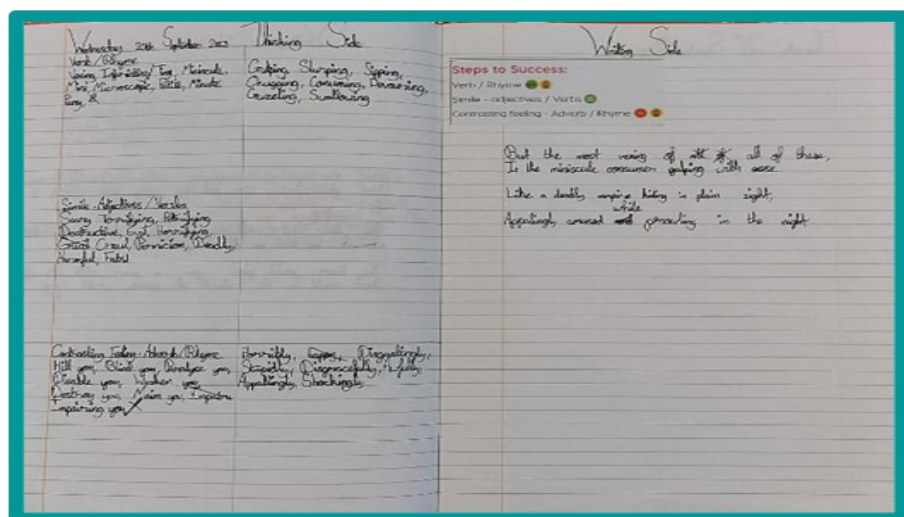 Wednesday 20th September 2023
Thinking Side
Verb / Rhyme
Vexing, Tiny, Miniscule,
Mini, Microscopic, Petite, Minute
Puny, &
Gulping, Slurping, Sipping,
Chugging, Consuming, Devouring,
Guzzling, Swallowing
Simile - Adjectives / Verbs
Scary Terrifying, Petrifying
Destructive, Evil, Horrifying
Cruel, Deadly,
Harmful, Fatal
Contrasting Feeling - Adverb / Rhyme
Kill you, Blind you, Paralyse you,
Disable you, Wither you,
Destroy you, Maim you,
Impairing you
Horribly, Disgustingly,
Stupidly, Disgracefully, Awfully
Appallingly, Shockingly
Writing Side
Steps to Success:
Verb / Rhyme
Simile - adjectives / Verbs
Contrasting feeling - Adverb / Rhyme
But the most vexing of all of these,
Is the miniscule consumer gulping with ease.
Like a deadly vampire hiding in plain sight,
while
Appallingly unused in the night